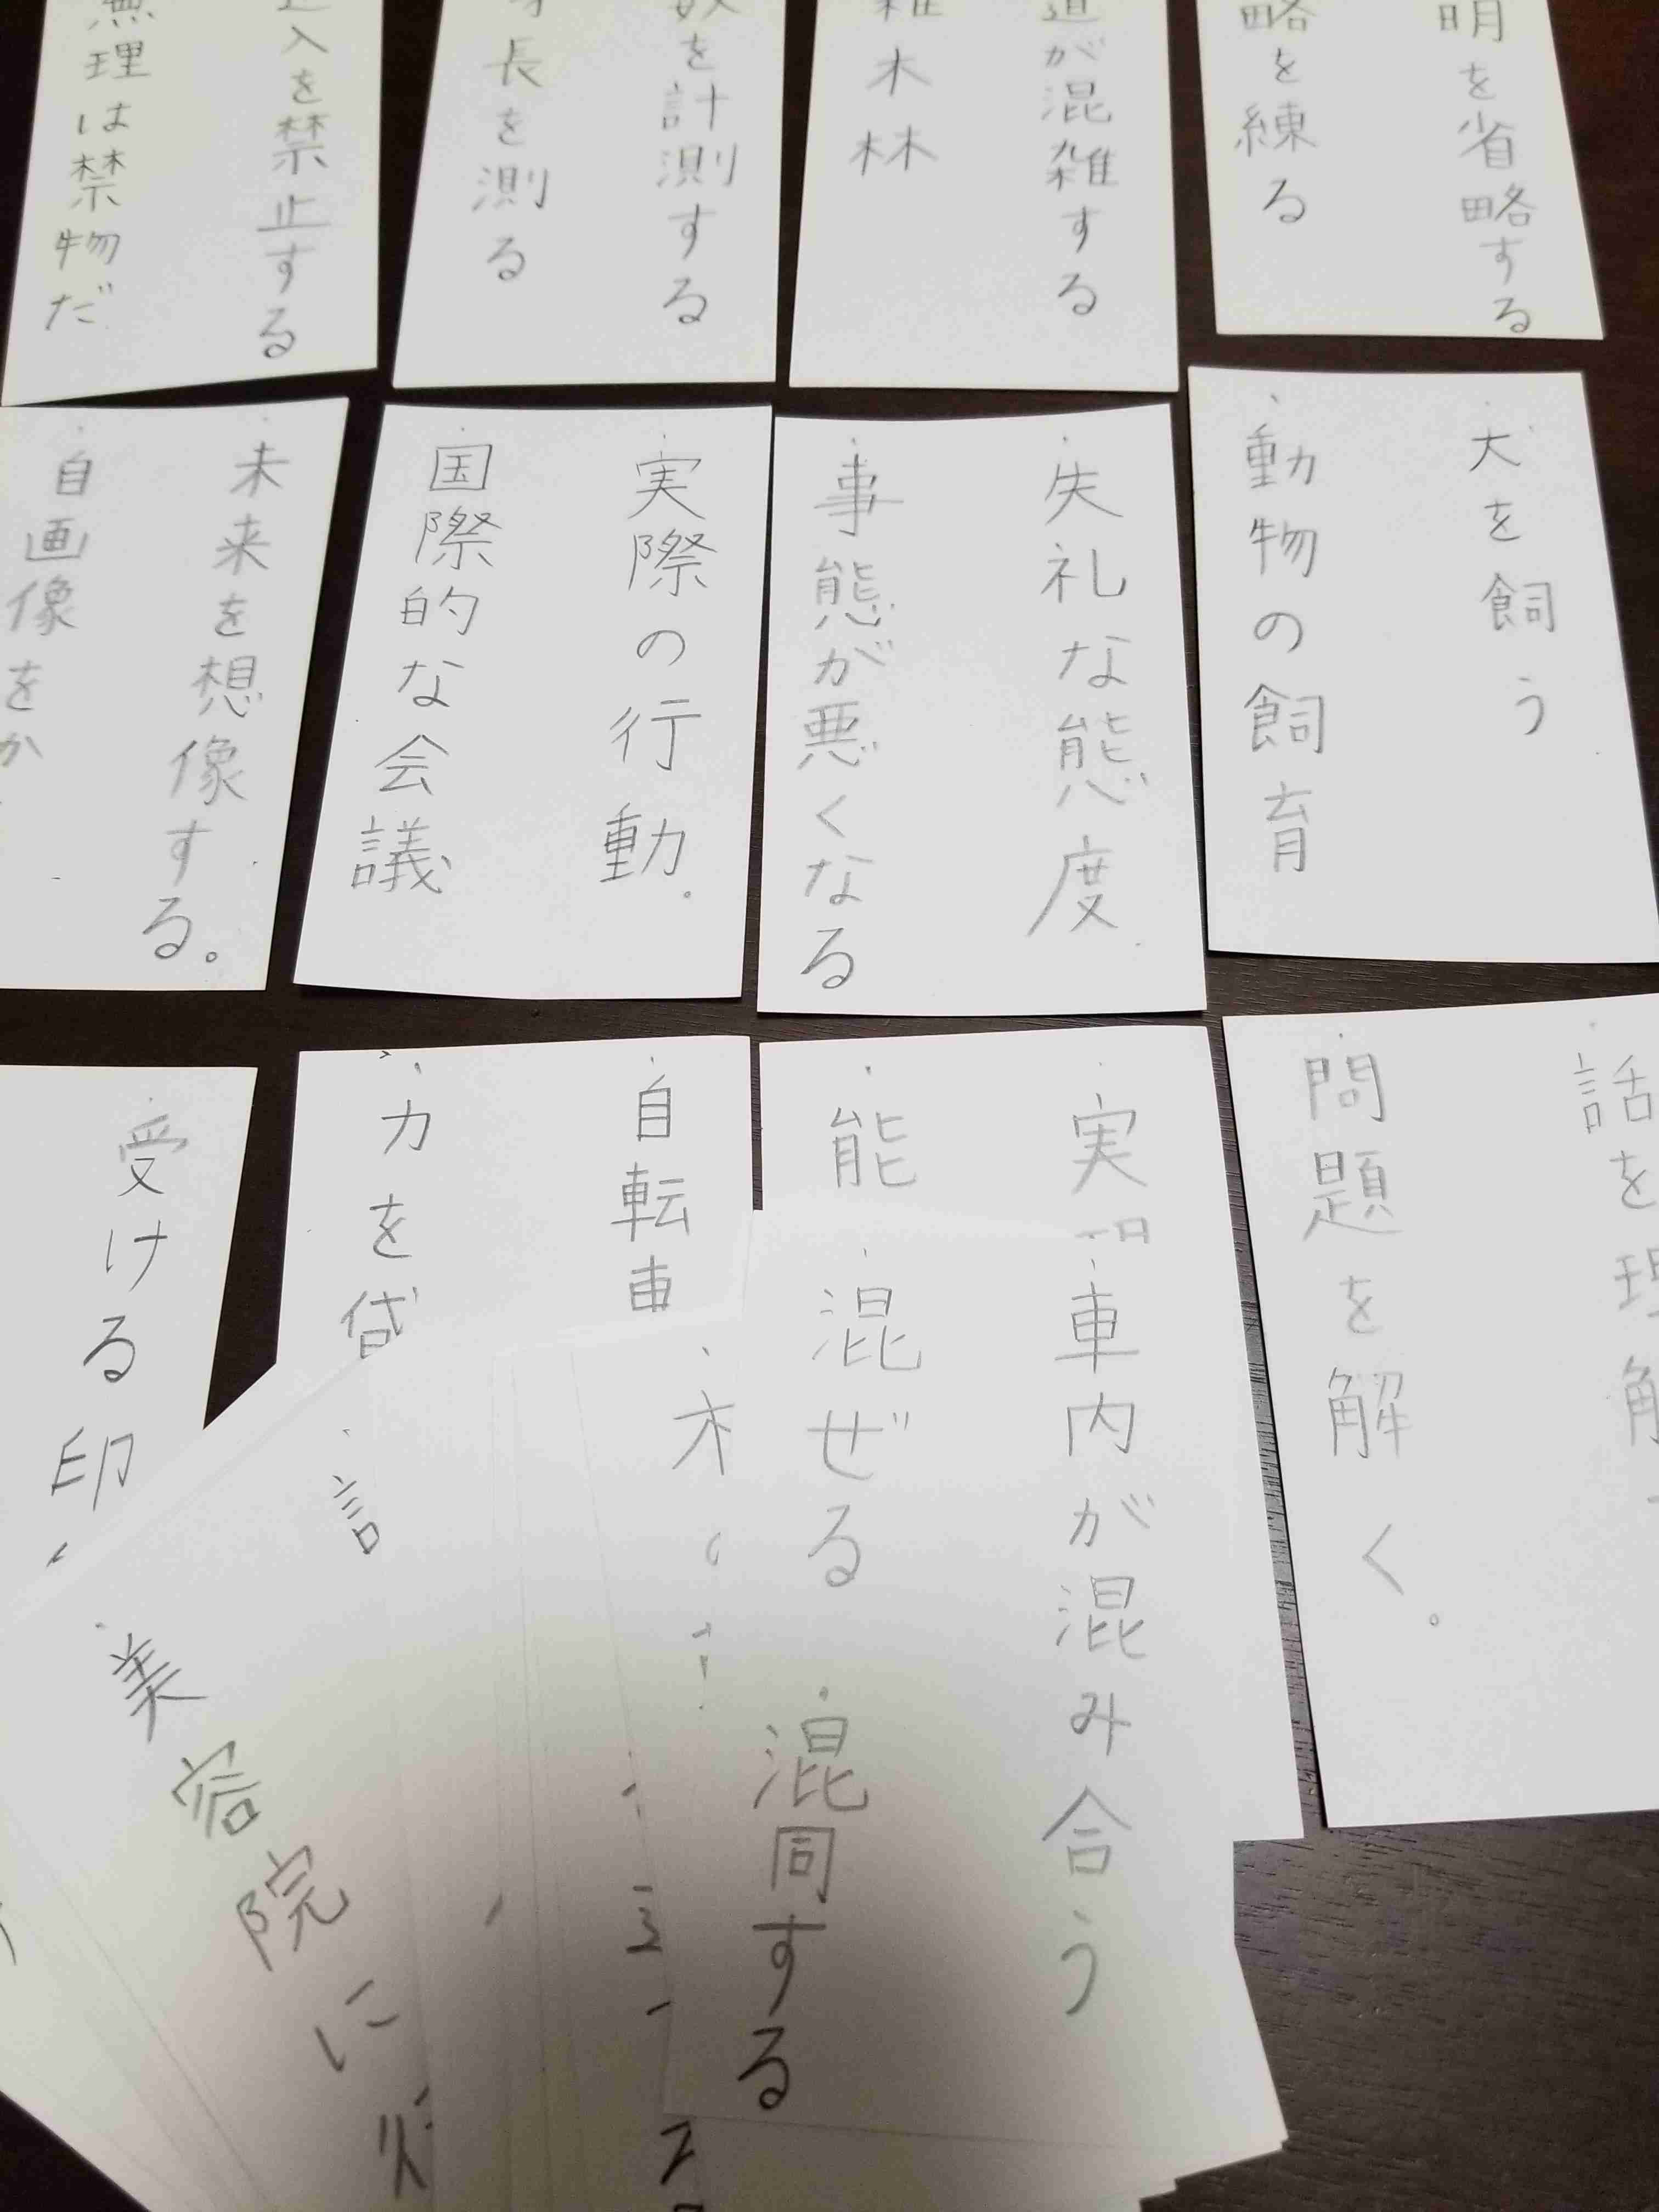 明を省略する
略を練る
道が混雑する
雑木林
数を計測する
長を測る
入を禁止する
無理は禁物だ
犬を飼う
動物の飼育
失礼な態度
事態が悪くなる
実際の行動。
国際的な会議
未来を想像する。
自画像をか
話を理解
問題を解く。
実
能
車内が混み合う
混ぜる
混同する
自転車
力を貸
受ける印
美容院に